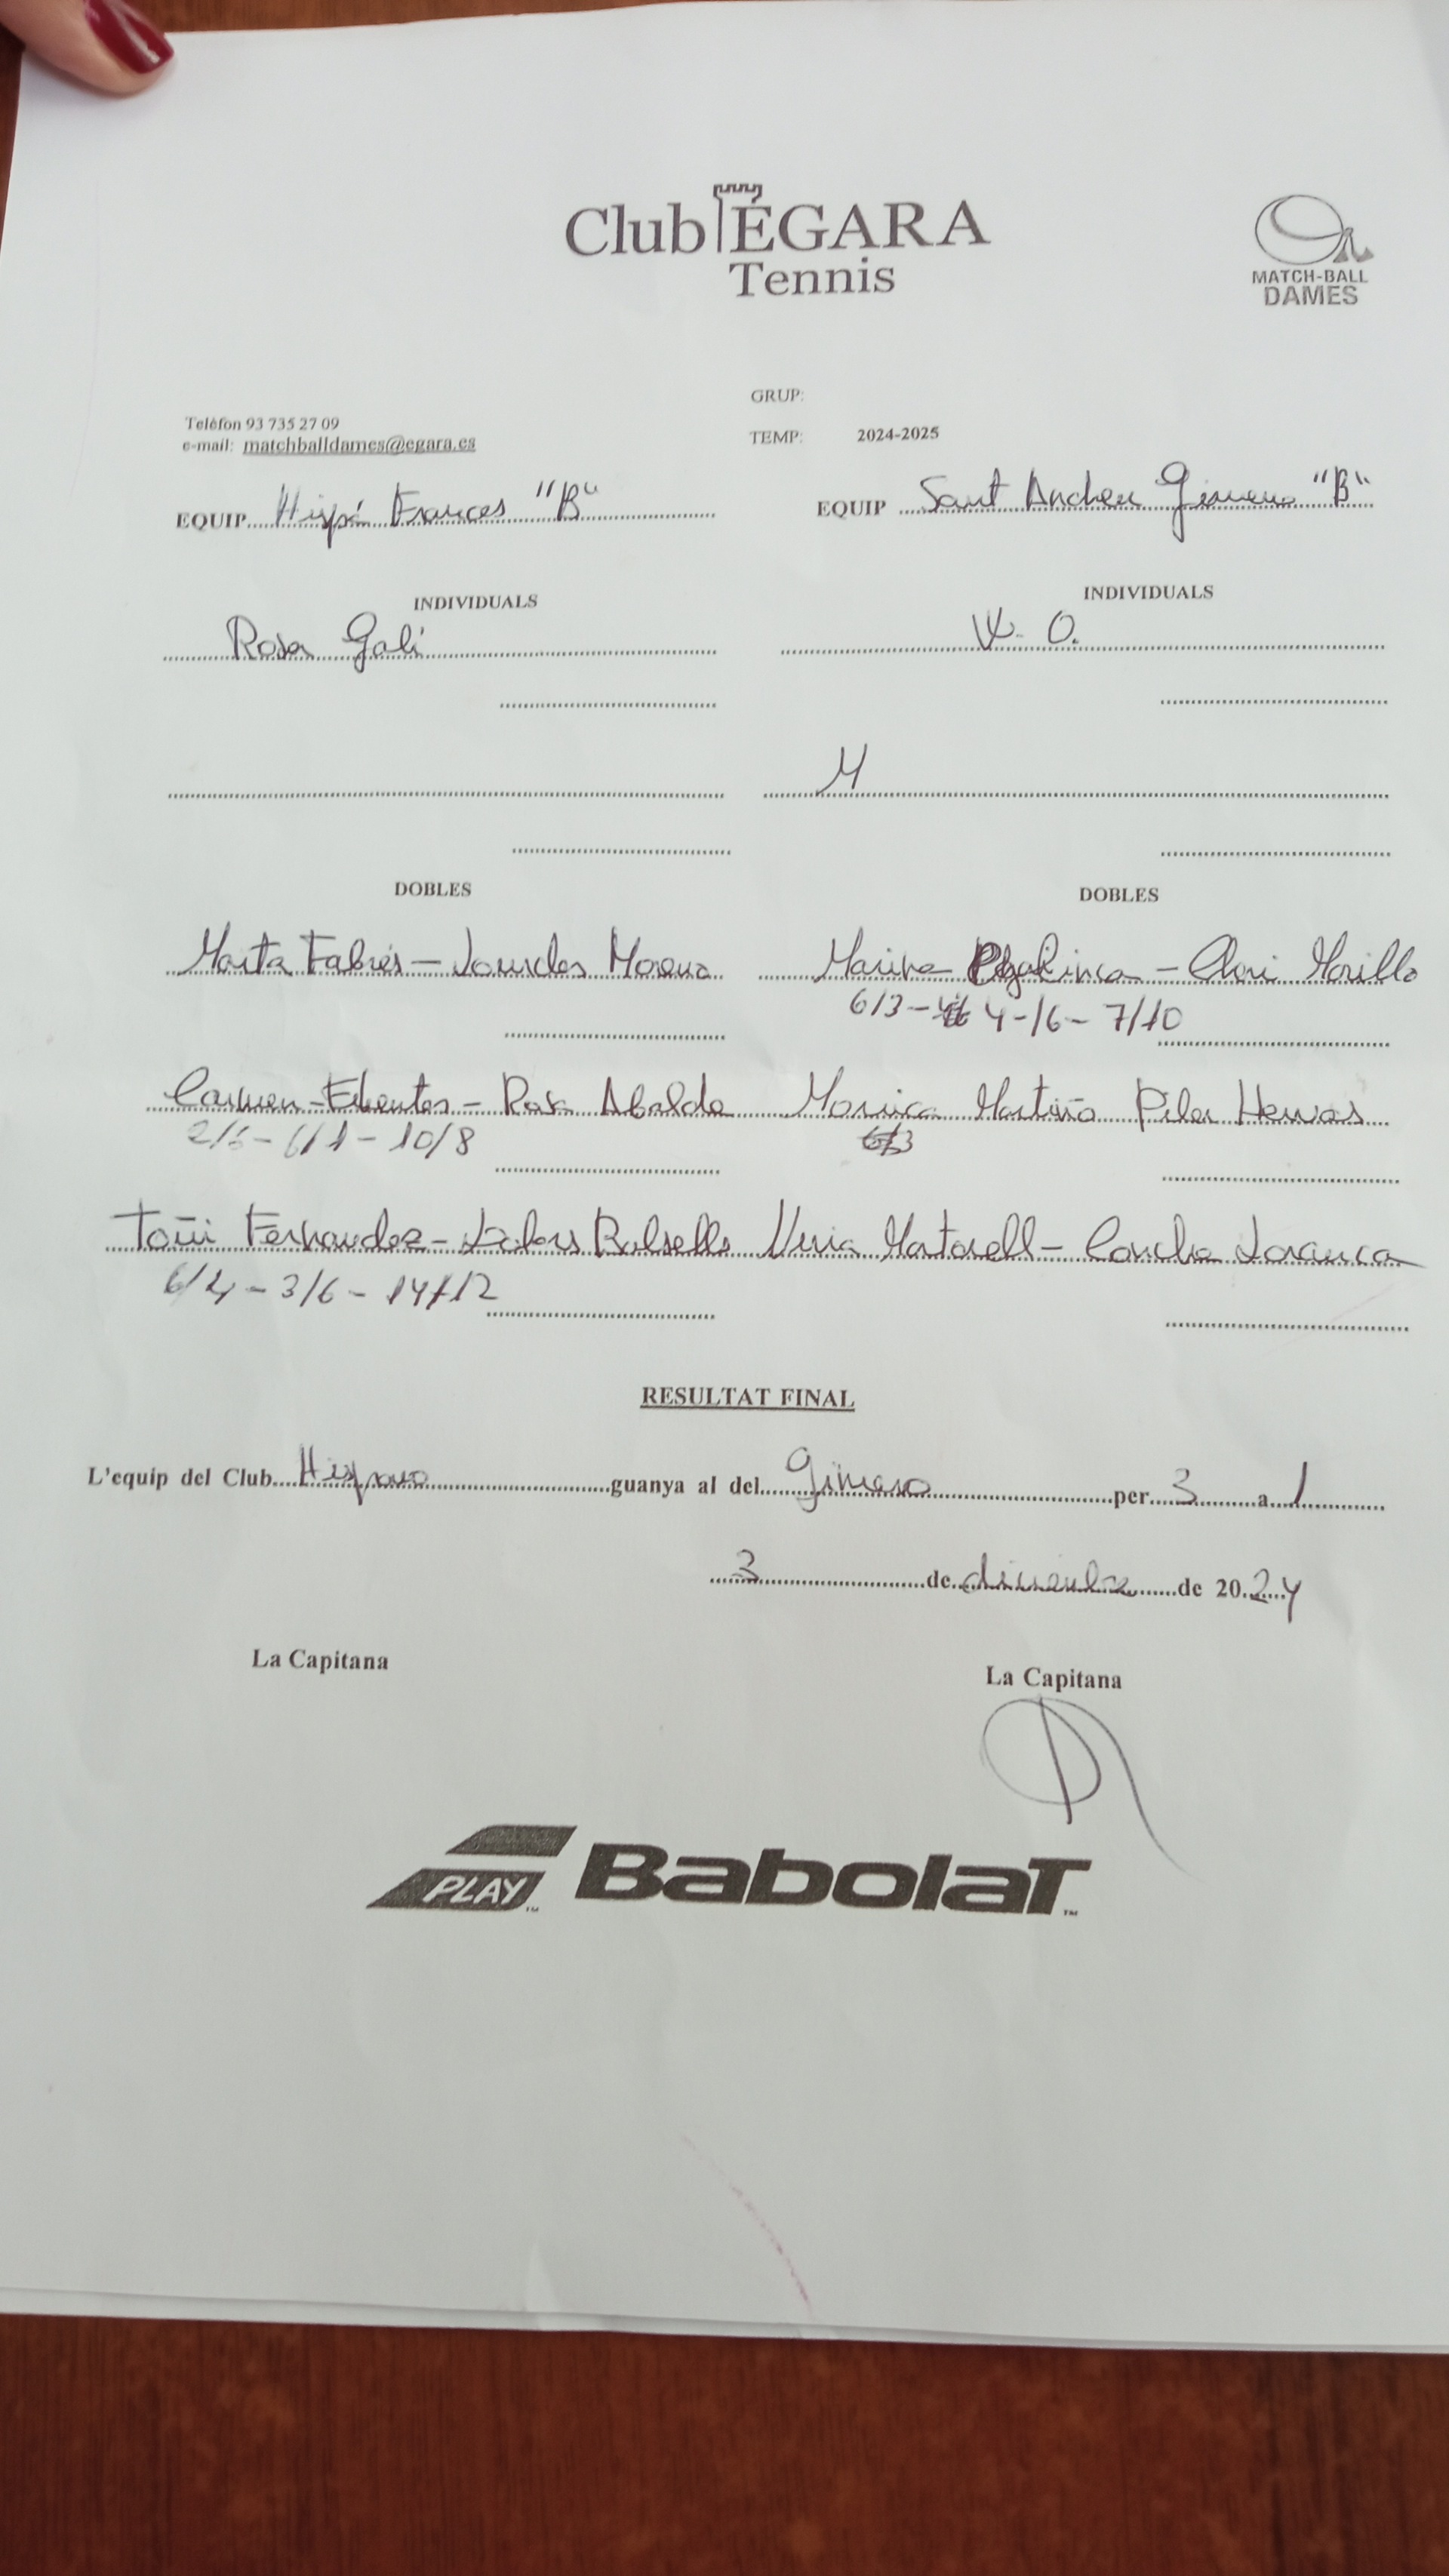 Club ÉGARA
Tennis
MATCH-BALL
DAMES
GRUP:
Telèfon 93 735 27 09
e-mail: matchballdames@egara.es
TEMP: 2024-2025
EQUIP Hispá Frances "B"
EQUIP Sant Andreu Gimeno "B"
INDIVIDUALS INDIVIDUALS
Rosa Galí W. O.
M
DOBLES DOBLES
Marta Fabrés - Lourdes Moreno Marina - Morillo
6/3 - 4-/6 - 7/10
Carmen - Rosa Abalda Monica Martiño Pilar Hervas
2/6 - 6/1 - 10/8 6/3
Toñi Fernandez - Dolors Balsells Nuria Martorell - Concha
6/4 - 3/6 - 14/12
RESULTAT FINAL
L'equip del Club Hispano guanya al del Gimeno per 3 a 1
3 de diciembre de 2024
La Capitana La Capitana
PLAY Babolat